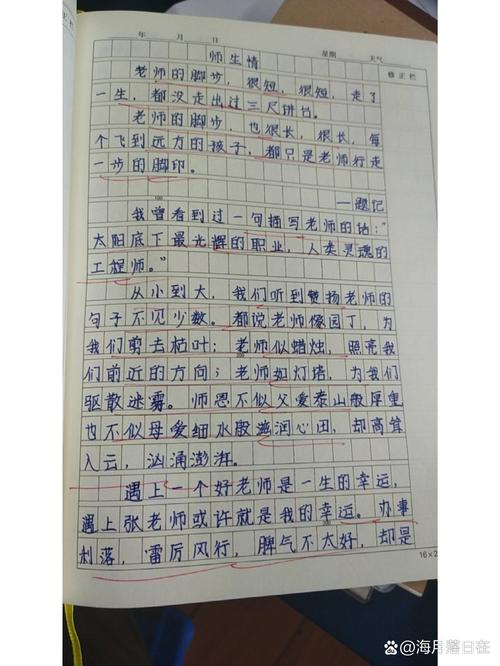 年 月 日 星期 天气
修正栏
师生情
老师的脚步，很短，很短，走了
一生，都没走出过三尺讲台。
老师的脚步，也很长，很长，每
个飞到远方的孩子，都只是老师行走
一步的脚印。
——题记
100
我曾看到过一句描写老师的话：“
太阳底下最光辉的职业，人类灵魂的
工程师。”
从小到大，我们听到赞扬老师的
句子不见少数。都说老师像园丁，为
我们剪去枯叶；老师似蜡烛，照亮我
200
们前近的方向；老师如灯塔，为我们
驱散迷雾。师恩不似父爱泰山般厚重
也不似母爱细水般滋润心田，却高耸
入云，汹涌澎湃。
遇上一个好老师是一生的幸运，
遇上张老师或许就是我的幸运。办事
300
利落，雷厉风行，脾气不大好，却是
16×2
@海月落日在